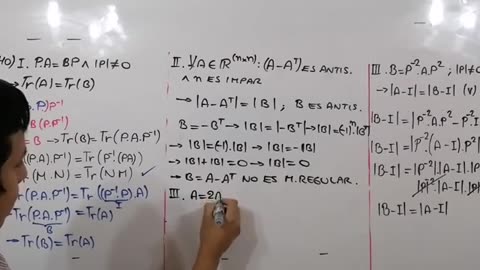 40) I. P.A = BP ∧ |P| ≠ 0
→ Tr(A) = Tr(B)
.P) P⁻¹
= B(P.P⁻¹)
→ Tr(B) = Tr(P.A.P⁻¹)
(P.A).P⁻¹) = Tr(P⁻¹.(PA))
(M.N) = Tr(N.M) ✓
Tr(P.A.P⁻¹) = Tr((P⁻¹.P).A)
I
Tr(P.A.P⁻¹) = Tr(A)
B
→ Tr(B) = Tr(A)
II. ∀A ∈ ℝ⁽ⁿˣⁿ⁾: (A-Aᵀ) ES ANTIS.
∧ n ES IMPAR
→ |A-Aᵀ| = |B| ; B ES ANTIS.
B = -Bᵀ → |B| = |-Bᵀ| → |B| = (-1)ⁿ|Bᵀ|
→ |B| = (-1).|B| → |B| = -|B|
→ |B|+|B| = 0 → |B| = 0
→ B = A-Aᵀ NO ES M. REGULAR.
III. A = 2A
III. B = P⁻².A.P² ; |P| ≠ 0
→ |A-I| = |B-I| (V)
|B-I| = |P⁻².A.P² - P⁻².I
|B-I| = |P⁻².(A-I).P²
|B-I| = |P⁻²||A-I|.
|B-I| = |A-I|